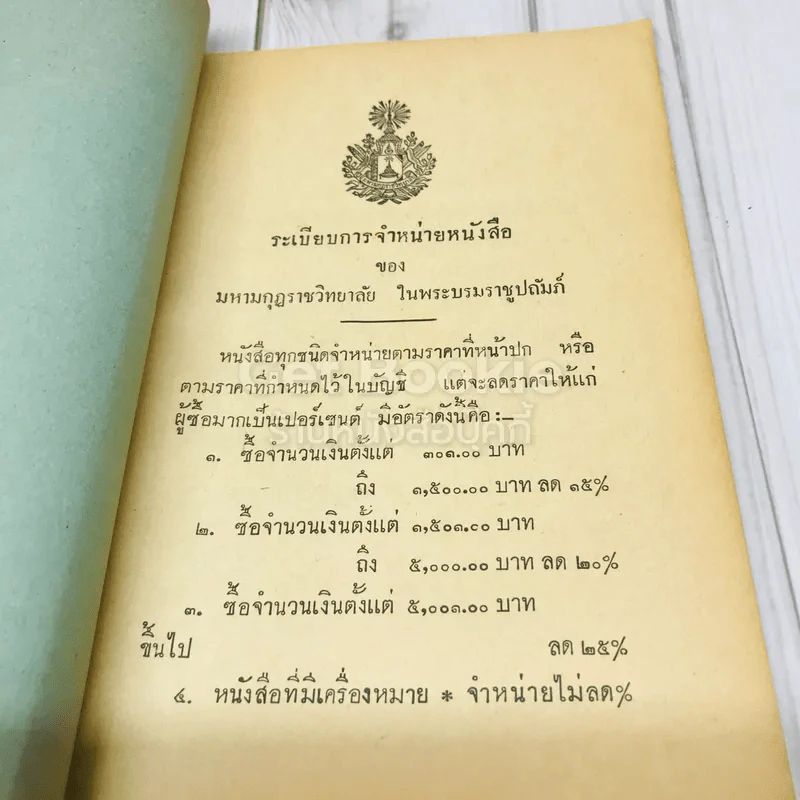 ระเบียบการจำหน่ายหนังสือ
ของ
มหามกุฏราชวิทยาลัย ในพระบรมราชูปถัมภ์
หนังสือทุกชนิดจำหน่ายตามราคาที่หน้าปก หรือ
ตามราคาที่กำหนดไว้ในบัญชี แต่จะลดราคาให้แก่
ผู้ซื้อมากเป็นเปอร์เซนต์ มีอัตราดังนี้คือ :—
๑. ซื้อจำนวนเงินตั้งแต่ ๓๐๑.๐๐ บาท
ถึง ๑,๕๐๐.๐๐ บาท ลด ๑๕%
๒. ซื้อจำนวนเงินตั้งแต่ ๑,๕๐๑.๐๐ บาท
ถึง ๕,๐๐๐.๐๐ บาท ลด ๒๐%
๓. ซื้อจำนวนเงินตั้งแต่ ๕,๐๐๑.๐๐ บาท
ขึ้นไป ลด ๒๕%
๔. หนังสือที่มีเครื่องหมาย * จำหน่ายไม่ลด%